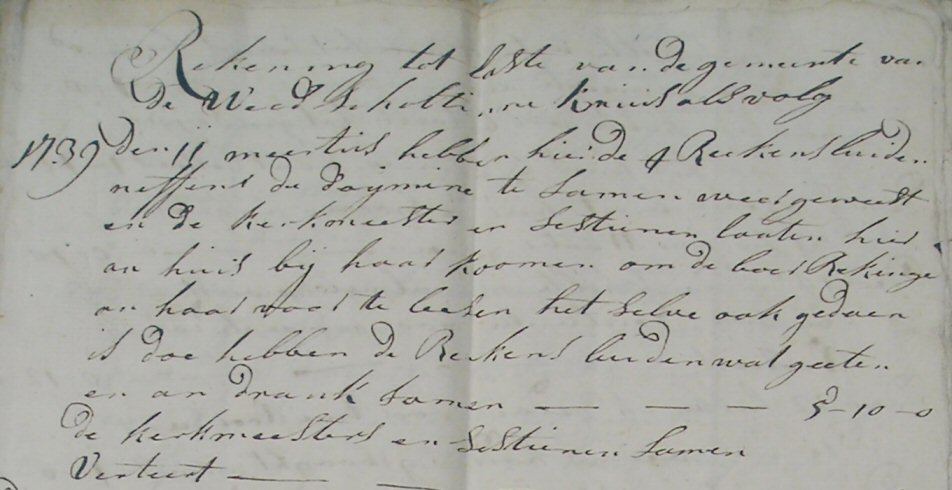 Rekening tot laste van de gemeente van
de Wed Scholti ine Kruis als volg
1739 den 11 meertius hebben hier de 4 Reekensluiden
neffens de te samen weer geweest
en de Kerkmeester en Sestienen laaten hier
an huis bij haar koomen om de boer Rekinge
an haar voor te leesen het selve ook gedaen
is doe hebben de Reekens luiden wat geeten
en an drank samen — — — 5-10-0
de Kerkmeesters en Sestienen samen
Verteert — —